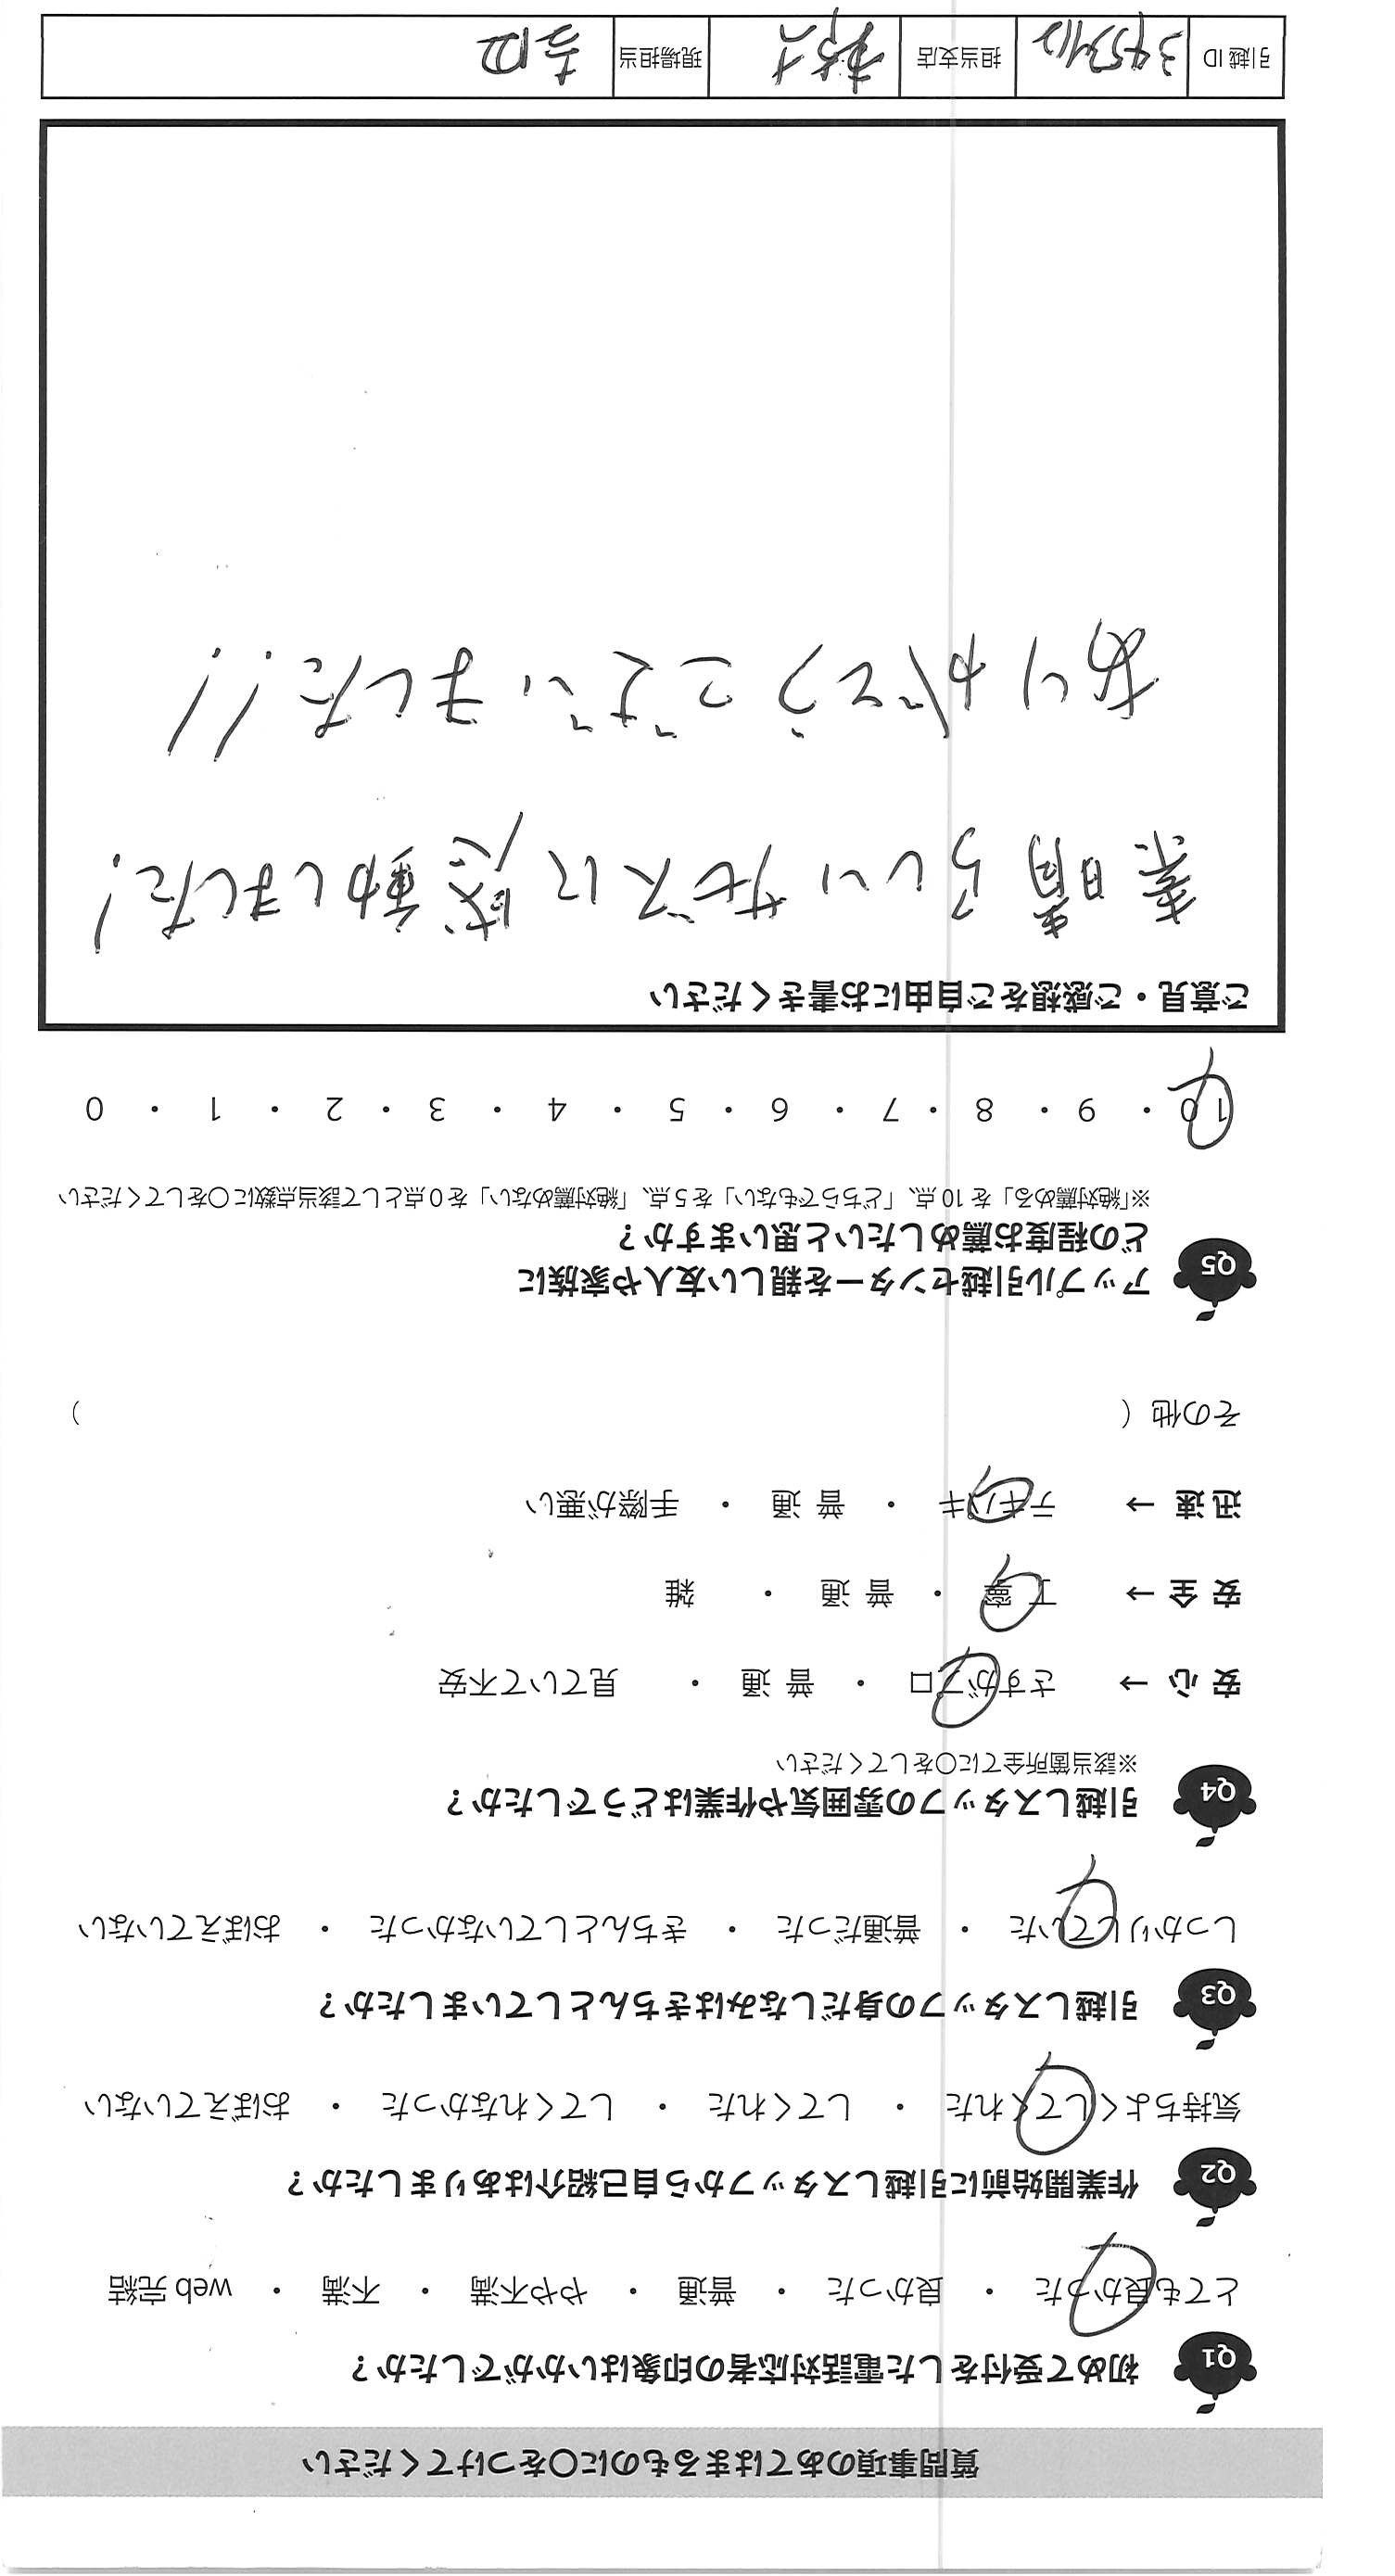 質問事項のあてはまるものに〇をつけてください
Q1 初めて受付をした電話対応者の印象はいかがでしたか？
とても良かった ・ 良かった ・ 普通 ・ やや不満 ・ 不満 ・ web 完結
Q2 作業開始前に引越しスタッフから自己紹介はありましたか？
気持ちよくしてくれた ・ してくれた ・ してくれなかった ・ おぼえていない
Q3 引越しスタッフの身だしなみはきちんとしていましたか？
しっかりしていた ・ 普通だった ・ きちんとしていなかった ・ おぼえていない
Q4 引越しスタッフの雰囲気や作業はどうでしたか？
※該当箇所全てに〇をしてください
安 心 → さすがプロ ・ 普 通 ・ 見ていて不安
安 全 → 丁 寧 ・ 普 通 ・ 雑
迅 速 → テキパキ ・ 普 通 ・ 手際が悪い
その他（ ）
Q5 アップル引越センターを親しい友人や家族に
どの程度お薦めしたいと思いますか？
※「絶対薦める」を 10 点、「どちらでもない」を 5 点、「絶対薦めない」を 0 点として該当点数に〇をしてください
10 ・ 9 ・ 8 ・ 7 ・ 6 ・ 5 ・ 4 ・ 3 ・ 2 ・ 1 ・ 0
ご意見・ご感想をご自由にお書きください
素晴らしいサービスに感動しました！
ありがとうございました！！
引越 ID 担当支店 現場担当